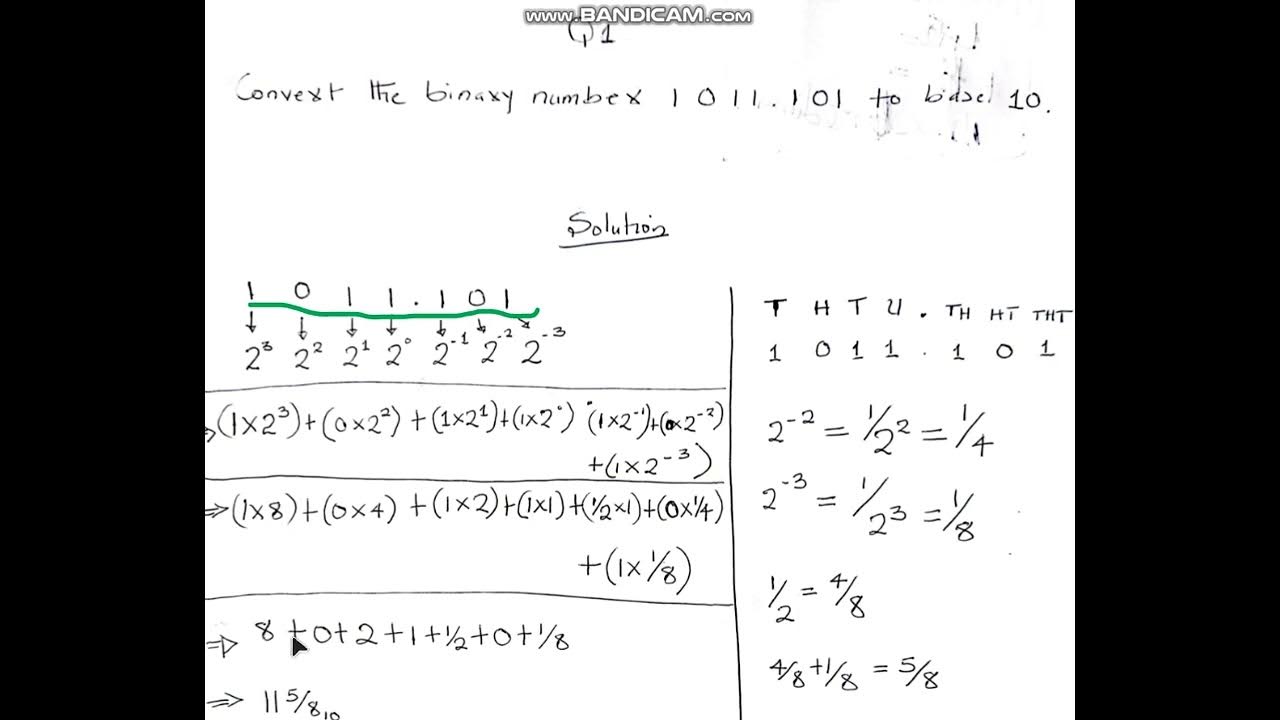 www.BANDICAM.com
Q1
Convert the binary number 1 0 1 1 . 1 0 1 to base 10.
Solution
1 0 1 1 . 1 0 1
2³ 2² 2¹ 2⁰ 2⁻¹ 2⁻² 2⁻³
⇒ (1×2³)+(0×2²)+(1×2¹)+(1×2⁰) (1×2⁻¹)+(0×2⁻²)
+(1×2⁻³)
⇒ (1×8)+(0×4)+(1×2)+(1×1)+(1/2×1)+(0×1/4)
+(1×1/8)
⇒ 8+0+2+1+1/2+0+1/8
⇒ 11 5/8₁₀
T H T U . TH HT THT
1 0 1 1 . 1 0 1
2⁻² = 1/2² = 1/4
2⁻³ = 1/2³ = 1/8
1/2 = 4/8
4/8+1/8 = 5/8